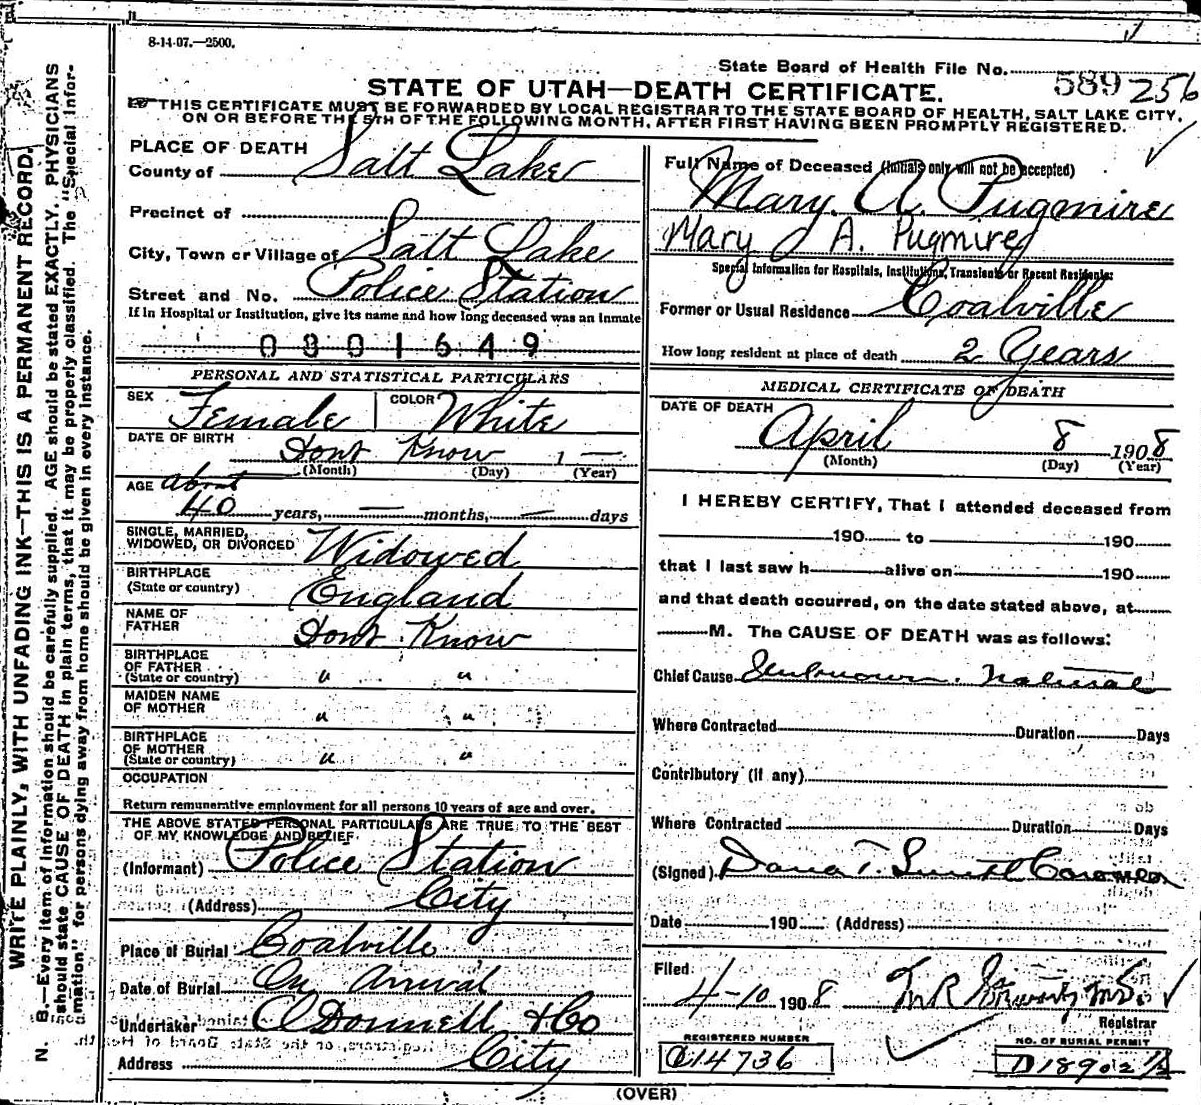 8-14-07.—2500.
State Board of Health File No. 589 256
STATE OF UTAH—DEATH CERTIFICATE.
THIS CERTIFICATE MUST BE FORWARDED BY LOCAL REGISTRAR TO THE STATE BOARD OF HEALTH, SALT LAKE CITY,
ON OR BEFORE THE 5TH OF THE FOLLOWING MONTH, AFTER FIRST HAVING BEEN PROMPTLY REGISTERED.
WRITE PLAINLY, WITH UNFADING INK—THIS IS A PERMANENT RECORD.
N. B.—Every item of information should be carefully supplied. AGE should be stated EXACTLY. PHYSICIANS
should state CAUSE OF DEATH in plain terms, that it may be properly classified. The "Special Infor-
mation" for persons dying away from home should be given in every instance.
PLACE OF DEATH
County of Salt Lake
Precinct of
City, Town or Village of Salt Lake
Street and No. Police Station
If in Hospital or Institution, give its name and how long deceased was an inmate
0801649
PERSONAL AND STATISTICAL PARTICULARS
SEX Female COLOR White
DATE OF BIRTH Dont Know 1 —
(Month) (Day) (Year)
AGE about
40 years, — months, — days
SINGLE, MARRIED,
WIDOWED, OR DIVORCED Widowed
BIRTHPLACE
(State or country) England
NAME OF
FATHER Dont Know
BIRTHPLACE
OF FATHER
(State or country) " "
MAIDEN NAME
OF MOTHER " "
BIRTHPLACE
OF MOTHER
(State or country) " "
OCCUPATION
Return remunerative employment for all persons 10 years of age and over.
THE ABOVE STATED PERSONAL PARTICULARS ARE TRUE TO THE BEST
OF MY KNOWLEDGE AND BELIEF
(Informant) Police Station
(Address) City
Place of Burial Coalville
Date of Burial On Arrival
Undertaker O'Donnell & Co
Address City
Full Name of Deceased (Initials only will not be accepted)
Mary. A. Pugmire
Mary A. Pugmire
Special Information for Hospitals, Institutions, Transients or Recent Residents:
Former or Usual Residence Coalville
How long resident at place of death 2 Years
MEDICAL CERTIFICATE OF DEATH
DATE OF DEATH
April 8 1908
(Month) (Day) (Year)
I HEREBY CERTIFY, That I attended deceased from
190 to 190
that I last saw h alive on 190
and that death occurred, on the date stated above, at
M. The CAUSE OF DEATH was as follows:
Chief Cause Unknown. Natural
Where Contracted Duration Days
Contributory (if any)
Where Contracted Duration Days
(Signed) Dana T. Smith Coroner
Date 190 (Address)
Filed
4-10 1908
Registrar
REGISTERED NUMBER
C14736
NO. OF BURIAL PERMIT
D18902 1/2
(OVER)